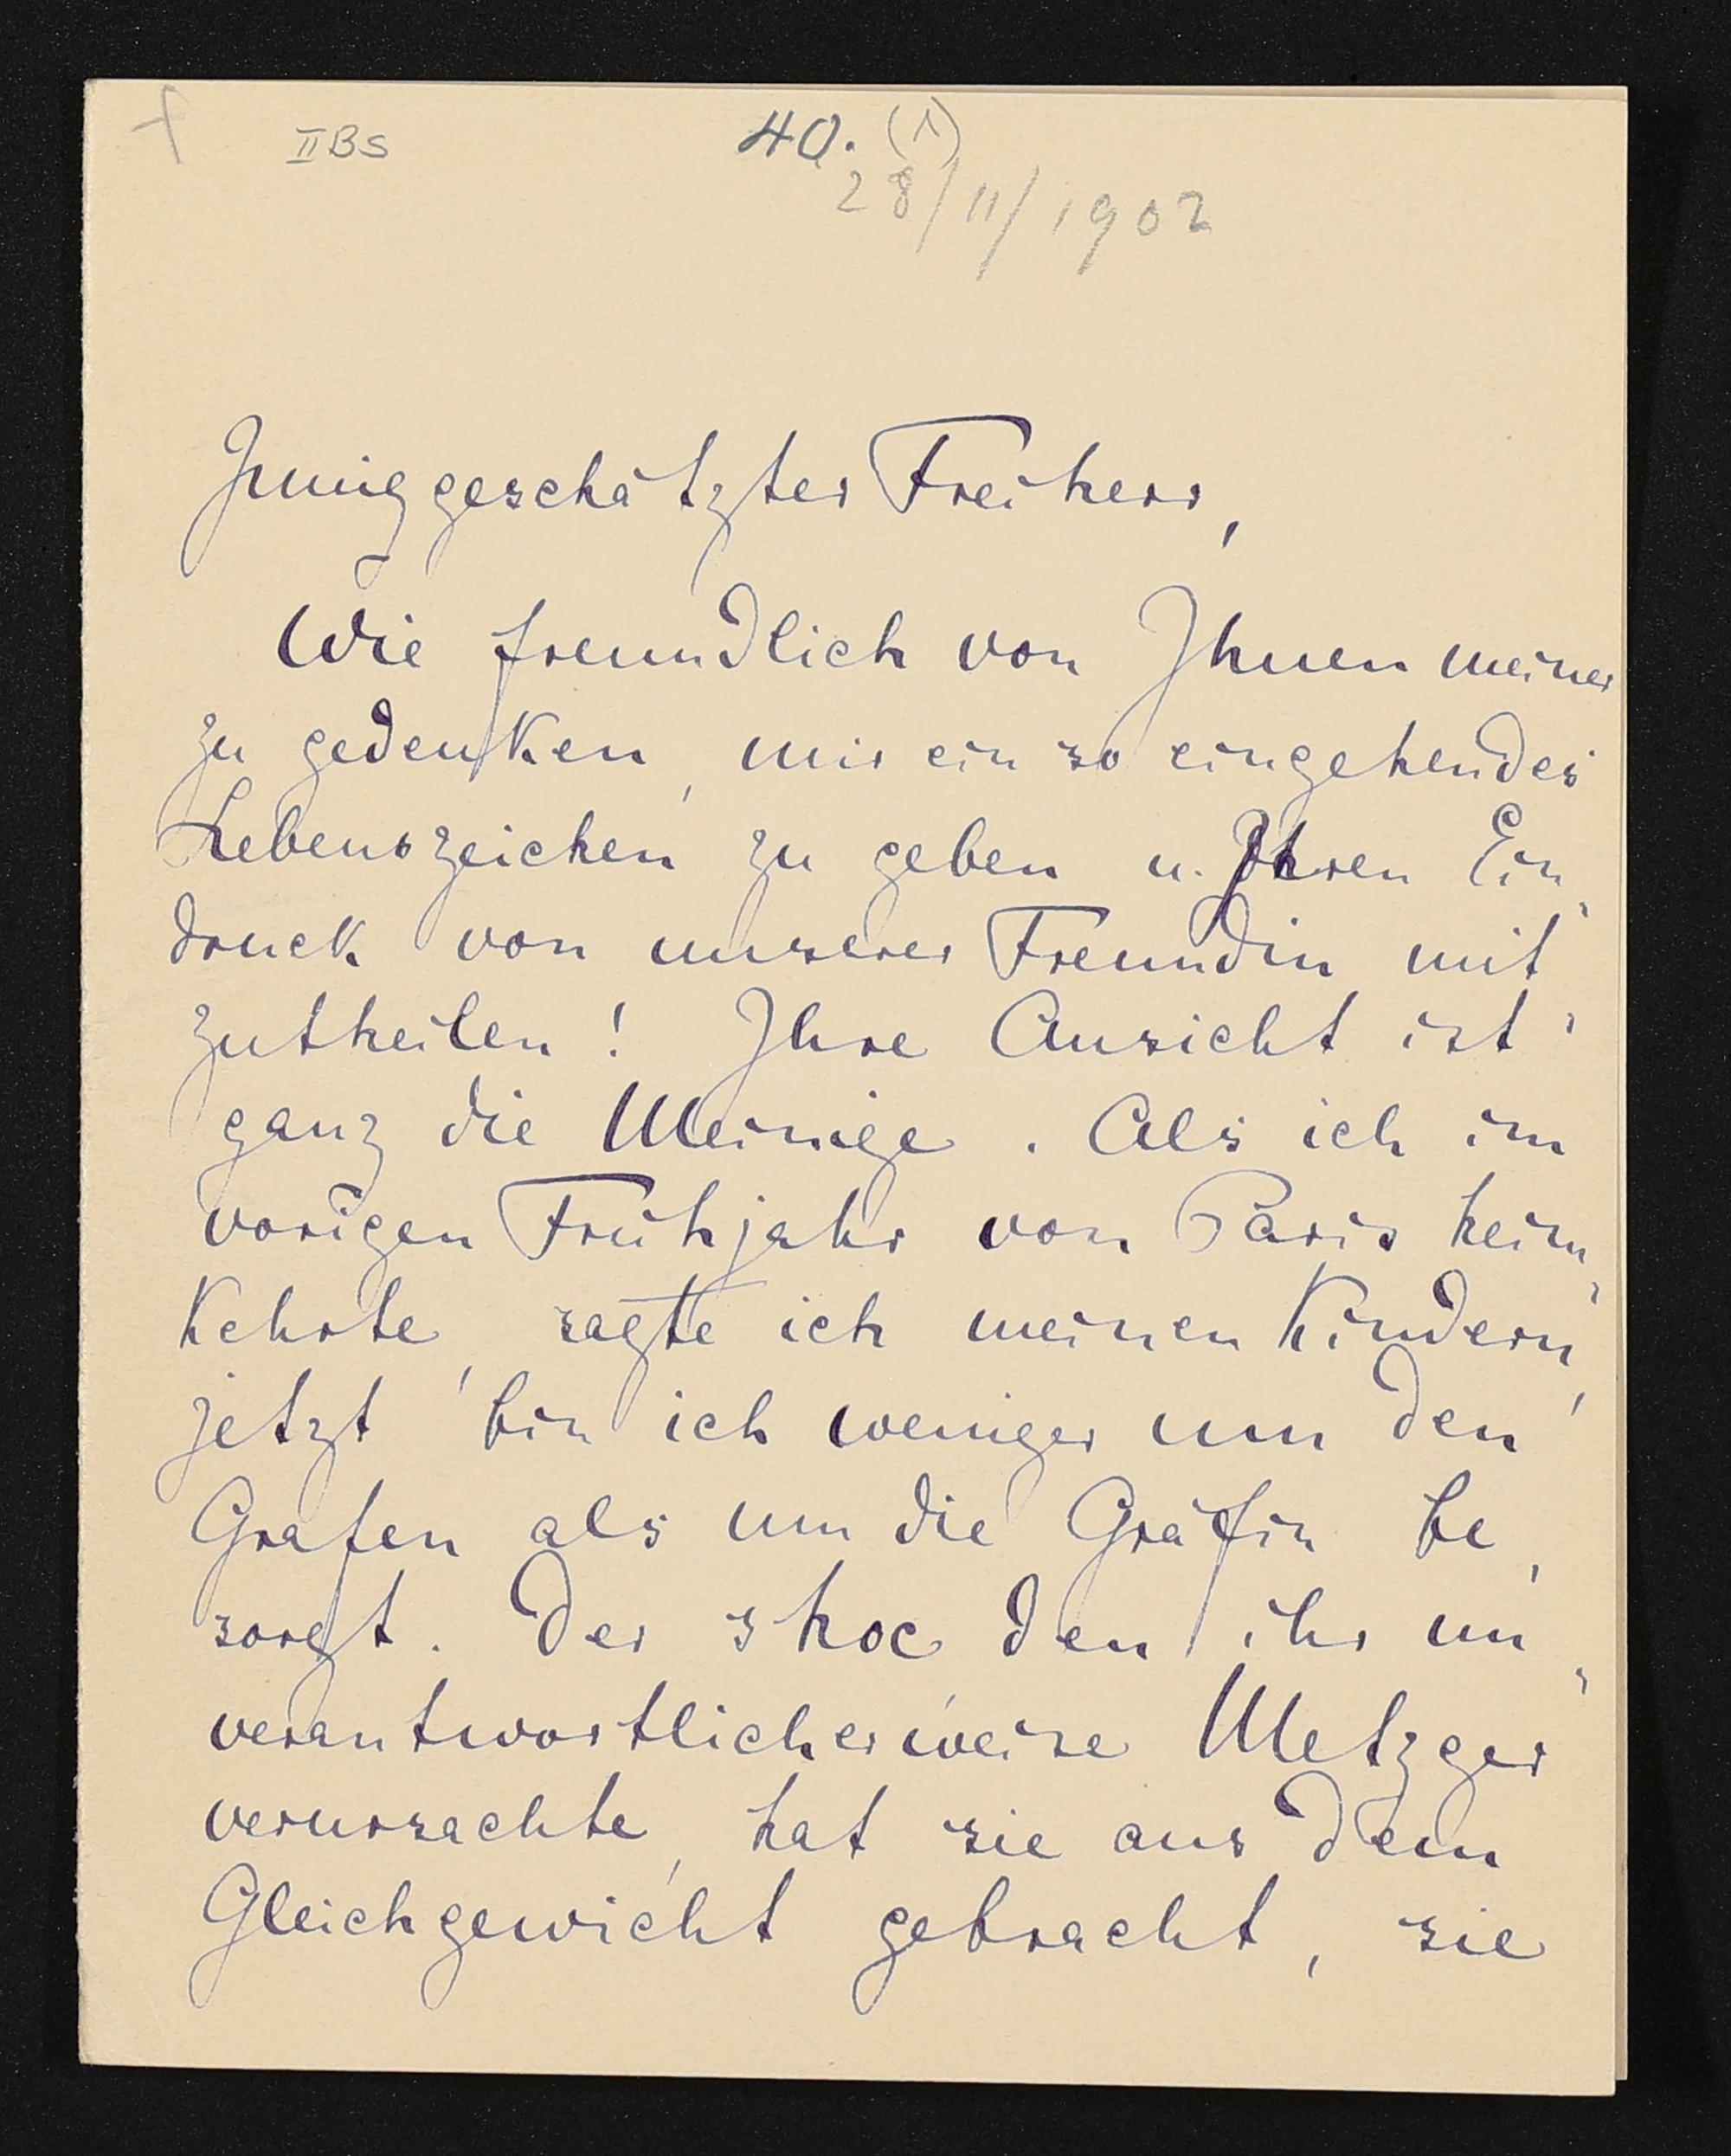 IIBs
40. (1)
28/11/1902
Innig geschätzter Freiherr,
Wie freundlich von Ihnen meiner
zu gedenken, mir ein so eingehendes
Lebenszeichen zu geben u. Ihren Ein-
druck von unserer Freundin mit-
zutheilen! Ihre Ansicht ist
ganz die Meinige. Als ich im
vorigen Frühjahr von Paris heim-
kehrte, sagte ich meinen Kindern,
jetzt bin ich weniger um den
Grafen als um die Gräfin be-
sorgt. Der shoc den ihr un-
verantwortlicherweise Metzger
verursachte, hat sie aus dem
Gleichgewicht gebracht, sie